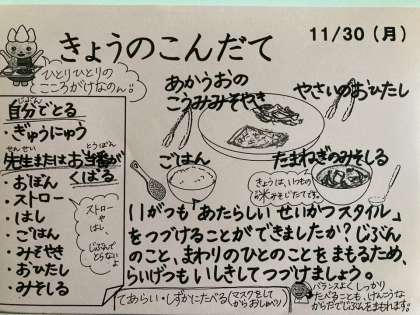 きょうのこんだて
11/30（月）
ひとりひとりの
こころがけなのん。
あかうおの
こうみみそやき
やさいのおひたし
ごはん
たまねぎのみそしる
自分でとる
じぶん
・ぎゅうにゅう
せんせい
とうばん
先生またはお当番が
くばる
・おぼん
・ストロー
・はし
・ごはん
・みそやき
・おひたし
・みそしる
ストロー
や
はし、
じぶんで
とらない
よ
きょうは、いつもの
お米みそじたてです。
11がつも「あたらしい せいかつ スタイル」
をつづけることができましたか？じぶん
のこと、まわりのひとのことをまもるため、
らいげつもいしきしてつづけましょう。
てあらい・しずかにたべる（マスクをして
からおしゃべり）
バランスよく しっかり
たべることも、けんこうな
からだでじぶんをまもれます。